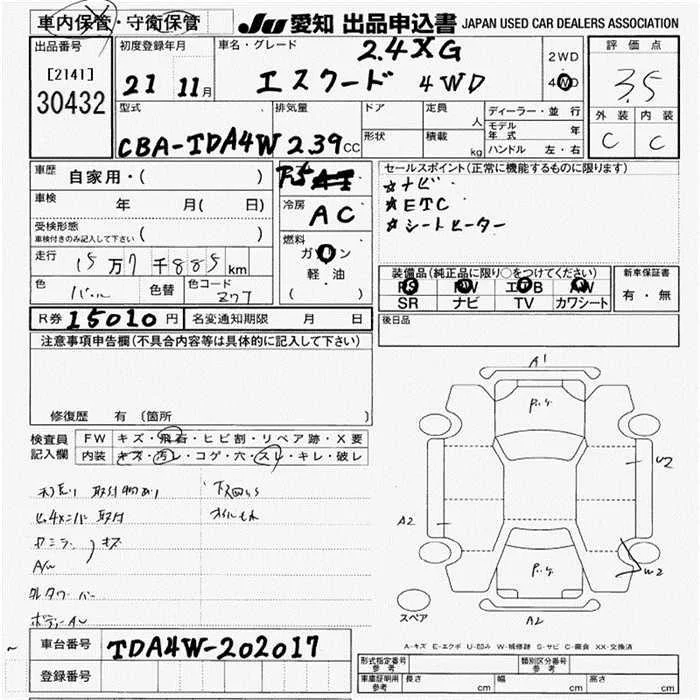 車内保管・守衛保管
JU 愛知 出品申込書 JAPAN USED CAR DEALERS ASSOCIATION
出品番号
[2141]
30432
初度登録年月
21 11月
車名・グレード
2.4XG
エスクード 4WD
2WD
4WD
評価点
3.5
外装 内装
C C
型式
CBA-TDA4W
排気量
2.39 CC
ドア
形状
定員 人
積載 kg
ディーラー・並行
モデル年式 年
ハンドル 左・右
車歴
自家用・( )
車検 年 月( 日)
受検形態
車検付きのみ記入して下さい ( )
走行 15万7千885km
色
色替
色コード
ZJ7
F5 AT
冷房
AC
燃料
ガソリン
軽油
( )
セールスポイント(正常に機能するものに限ります)
☆ナビ
☆ETC
☆シートヒーター
装備品(純正品に限り○をつけてください)
PS PW エアB AW
SR ナビ TV カワシート
新車保証書
有・無
R券 15010円
名変通知期限 月 日
後日品
注意事項申告欄(不具合内容等は具体的に記入して下さい)
修復歴 有(箇所 )
検査員
記入欄
FW キズ・飛石・ヒビ割・リペア跡・X要
内装 キズ・汚レ・コゲ・穴・スレ・キレ・破レ
下回りさび
オイルもれ
A/W
A1
W2
A2
W2
A2
スペア
A-キズ E-エクボ U-凹み W-補修跡 S-サビ C-腐食 XX-交換済
車台番号 TDA4W-202017
登録番号
形式指定番号
参考
類別区分番号
参考
車庫証明用
参考
長さ cm
幅 cm
高さ cm